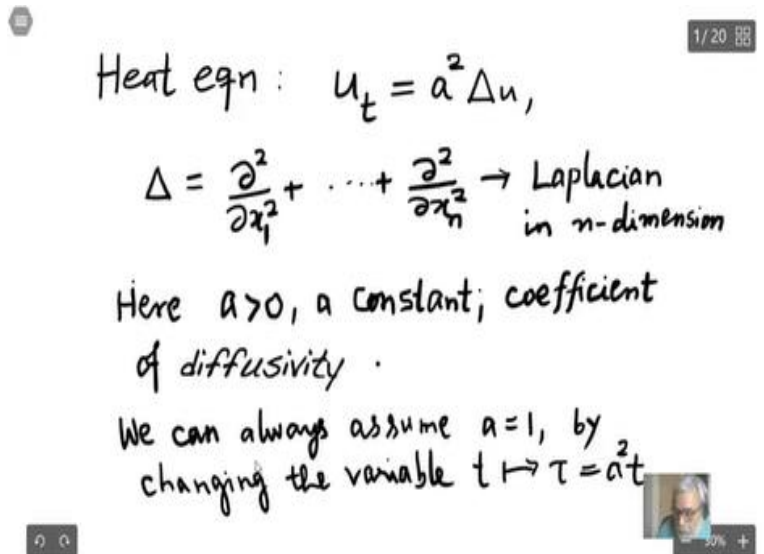 1/20
Heat eqn: u_t = a² Δu,
Δ = ∂²/∂x₁² + ⋯ + ∂²/∂xₙ² → Laplacian
in n-dimension
Here a>0, a constant; coefficient
of diffusivity.
We can always assume a=1, by
changing the variable t ↦ τ = a²t
30%